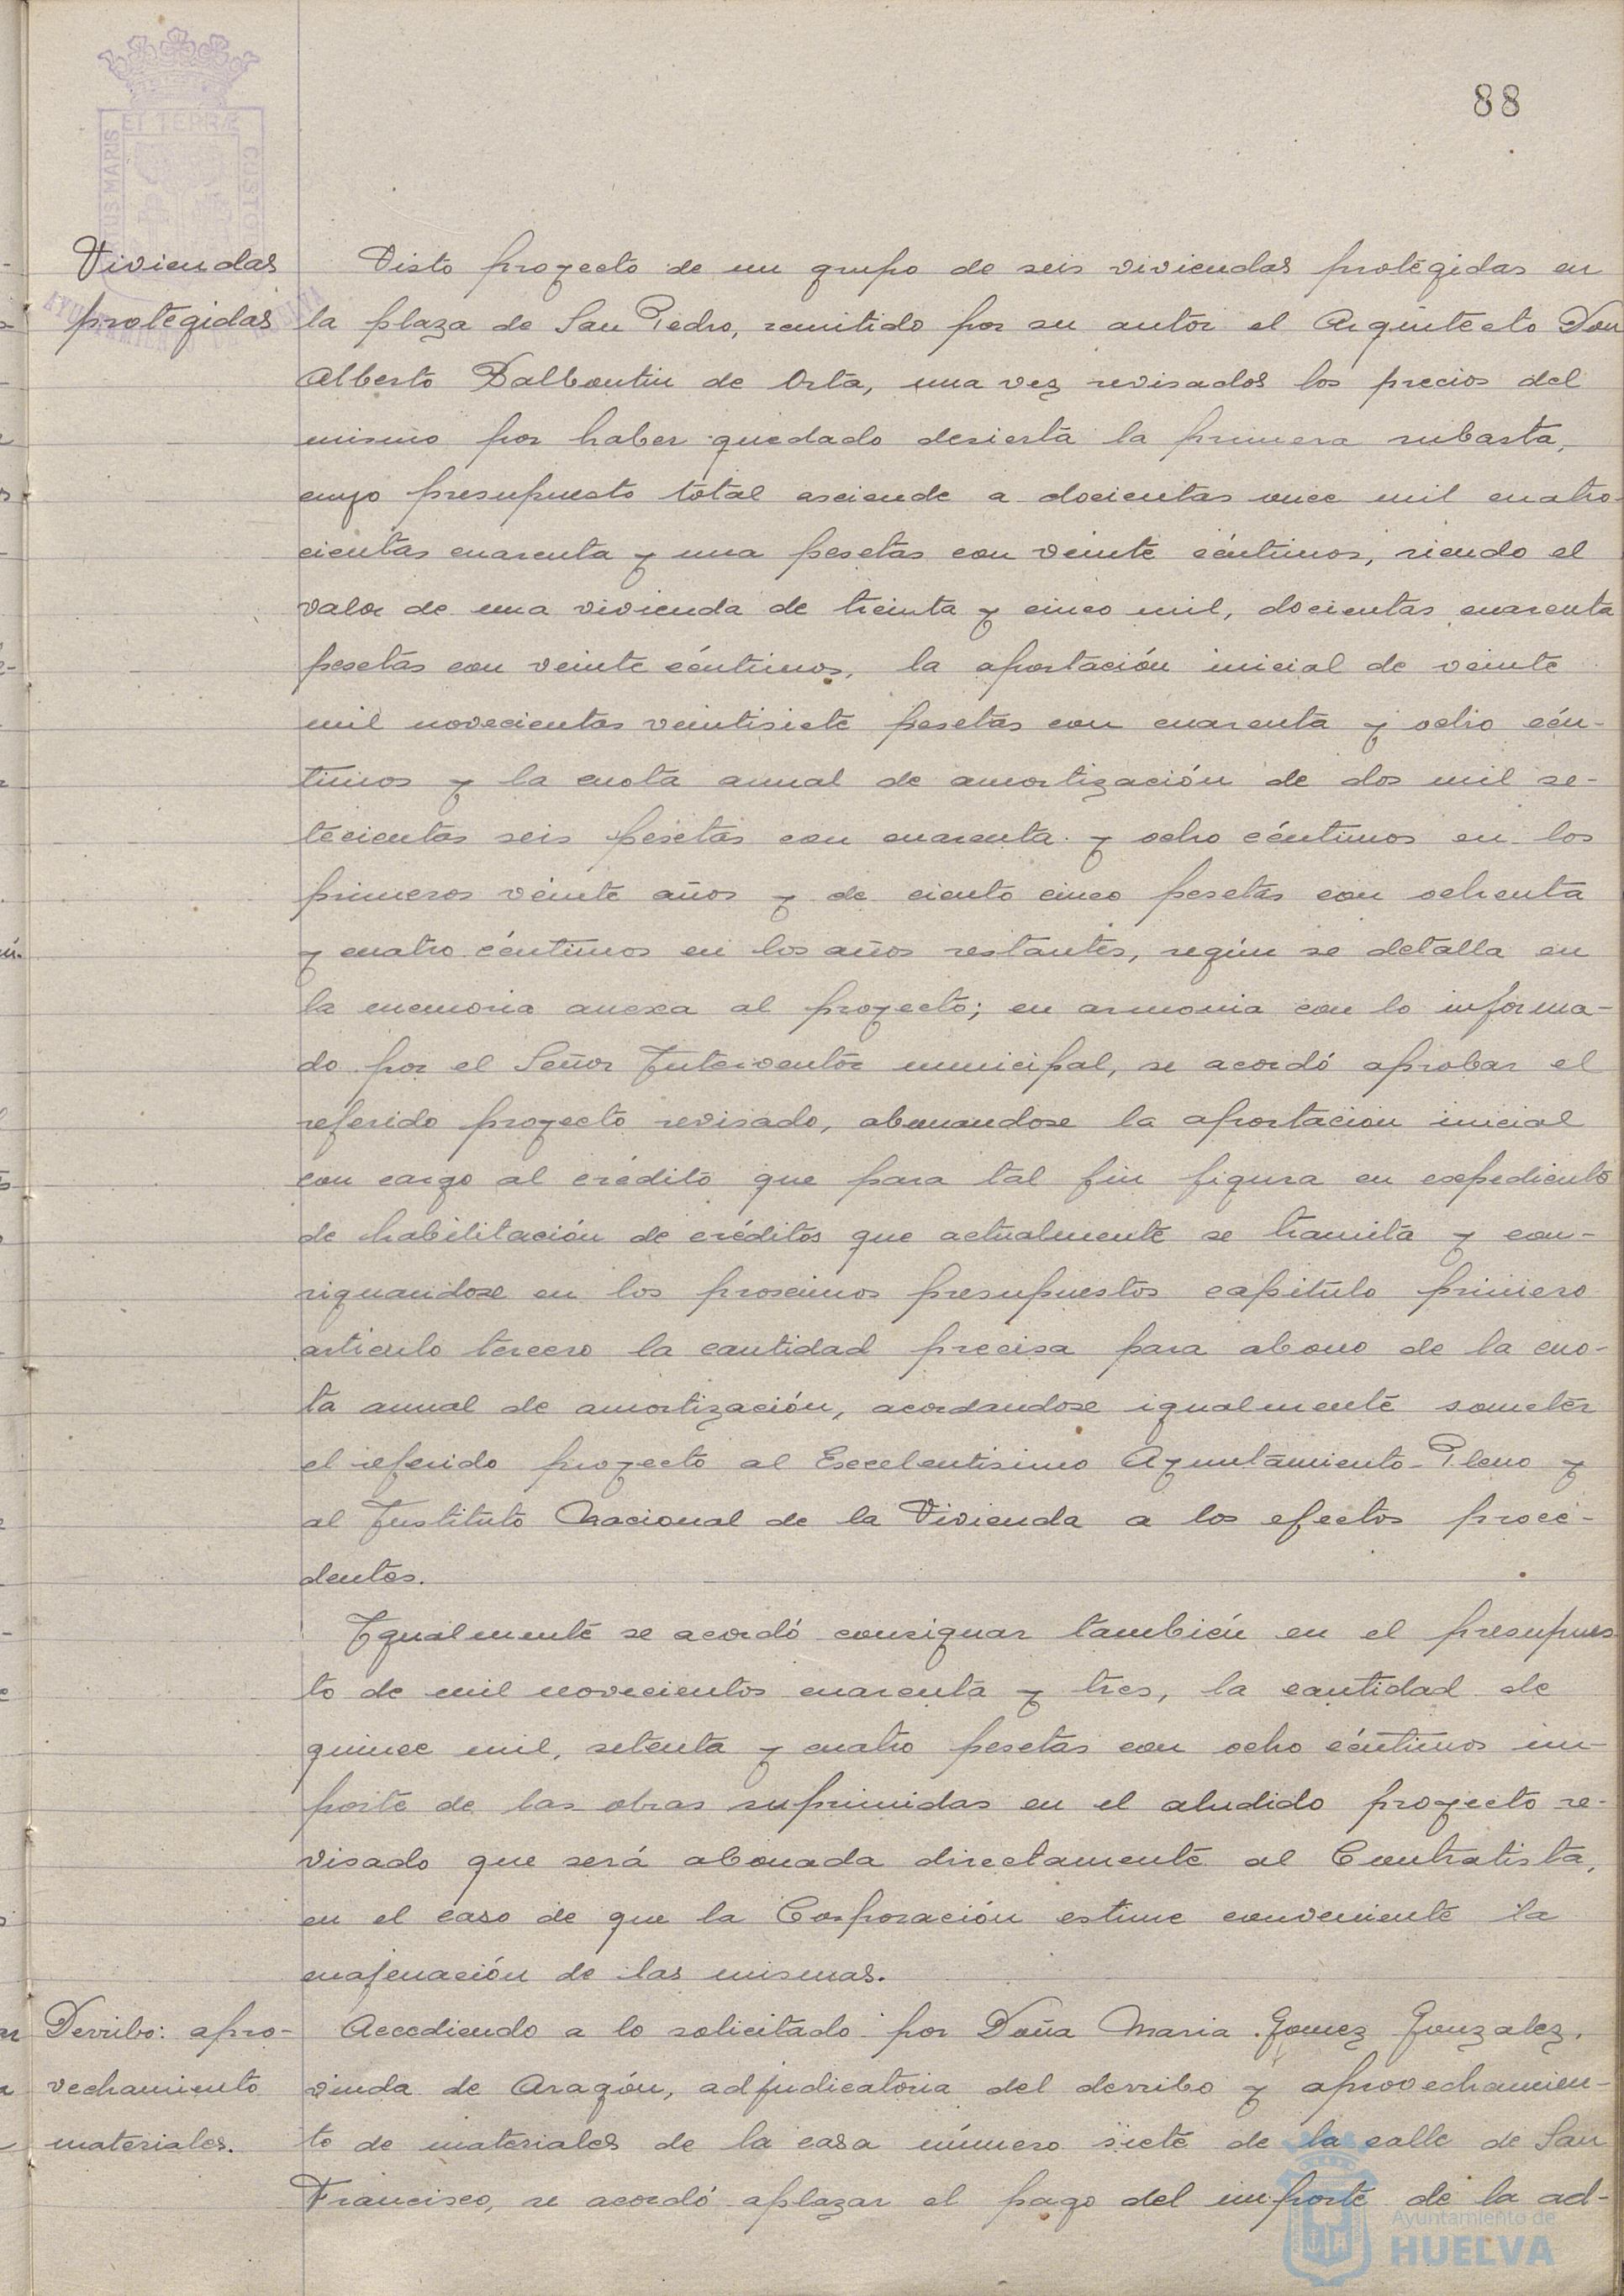 88
Viviendas
protegidas
Visto proyecto de un grupo de seis viviendas protegidas en
la plaza de San Pedro, remitido por su autor el Arquitecto Don
Alberto Balbontin de Orta, una vez revisados los precios del
mismo por haber quedado desierta la primera subasta,
cuyo presupuesto total asciende a docientas once mil cuatro-
cientas cuarenta y una pesetas con veinte céntimos, siendo el
valor de una vivienda de treinta y cinco mil, docientas cuarenta
pesetas con veinte céntimos, la aportación inicial de veinte
mil novecientas veintisiete pesetas con cuarenta y ocho cén-
timos y la cuota anual de amortización de dos mil se-
tecientas seis pesetas con cuarenta y ocho céntimos en los
primeros veinte años y de ciento cinco pesetas con ochenta
y cuatro céntimos en los años restantes, según se detalla en
la memoria anexa al proyecto; en armonia con lo informa-
do por el Señor Interventor municipal, se acordó aprobar el
referido proyecto revisado, abonandose la aportacion inicial
con cargo al crédito que para tal fin figura en expediente
de habilitación de créditos que actualmente se tramita y con-
signandose en los proximos presupuestos capitulo primero
articulo tercero la cantidad precisa para abono de la cuo-
ta anual de amortización, acordandose igualmente someter
el referido proyecto al Excelentisimo Ayuntamiento-Pleno y
al Instituto Nacional de la Vivienda a los efectos proce-
dentes.
Igualmente se acordó consignar también en el presupues-
to de mil novecientos cuarenta y tres, la cantidad de
quince mil, setenta y cuatro pesetas con ocho céntimos im-
porte de las obras suprimidas en el aludido proyecto re-
visado que será abonada directamente al Contratista,
en el caso de que la Corporación estime conveniente la
enajenación de las mismas.
Derribo: apro-
vechamiento
materiales.
Accediendo a lo solicitado por Doña Maria Gomez Gonzalez,
viuda de Aragón, adjudicatoria del derribo y aprovechamien-
to de materiales de la casa número siete de la calle de San
Francisco, se acordó aplazar el pago del importe de la ad-
Ayuntamiento de
HUELVA